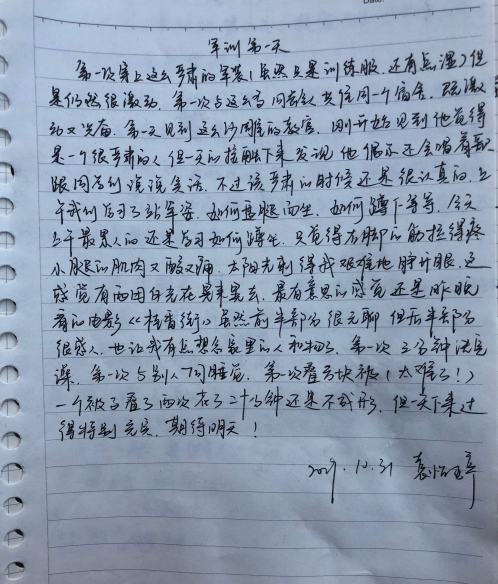 Date:
军训第一天
第一次穿上这么严肃的军装(虽然只是训练服,还有点湿)但
是仍然很激动,第一次与这么多同龄人共住同一个宿舍,既激
动又兴奋。第一天见到这么沙雕的教官,刚开始见到他觉得
是一个很严肃的人,但一天的接触下来发现他偶尔还会唱着歌
跟同学们说说笑话,不过该严肃的时候还是很认真的。上
午我们学习了站军姿,如何盘腿而坐,如何蹲下等等,今天
上午最累人的还是学习如何蹲,只觉得右脚的筋拉得疼
小腿的肌肉又酸又痛,太阳光刺得我艰难地睁开眼,还
感觉有两团白光在晃来晃去。最有意思的感觉还是昨晚
看的电影《桂香街》虽然前半部分很无聊但后半部分
很感人,也让我有点想念家里的人和物了。第一次三分钟洗完
澡,第一次与别人一同睡觉,第一次叠方块被(太难了!)
一个被子叠了两次花了二十分钟还是不成形,但一天下来过
得特别充实,期待明天!
2019.10.31